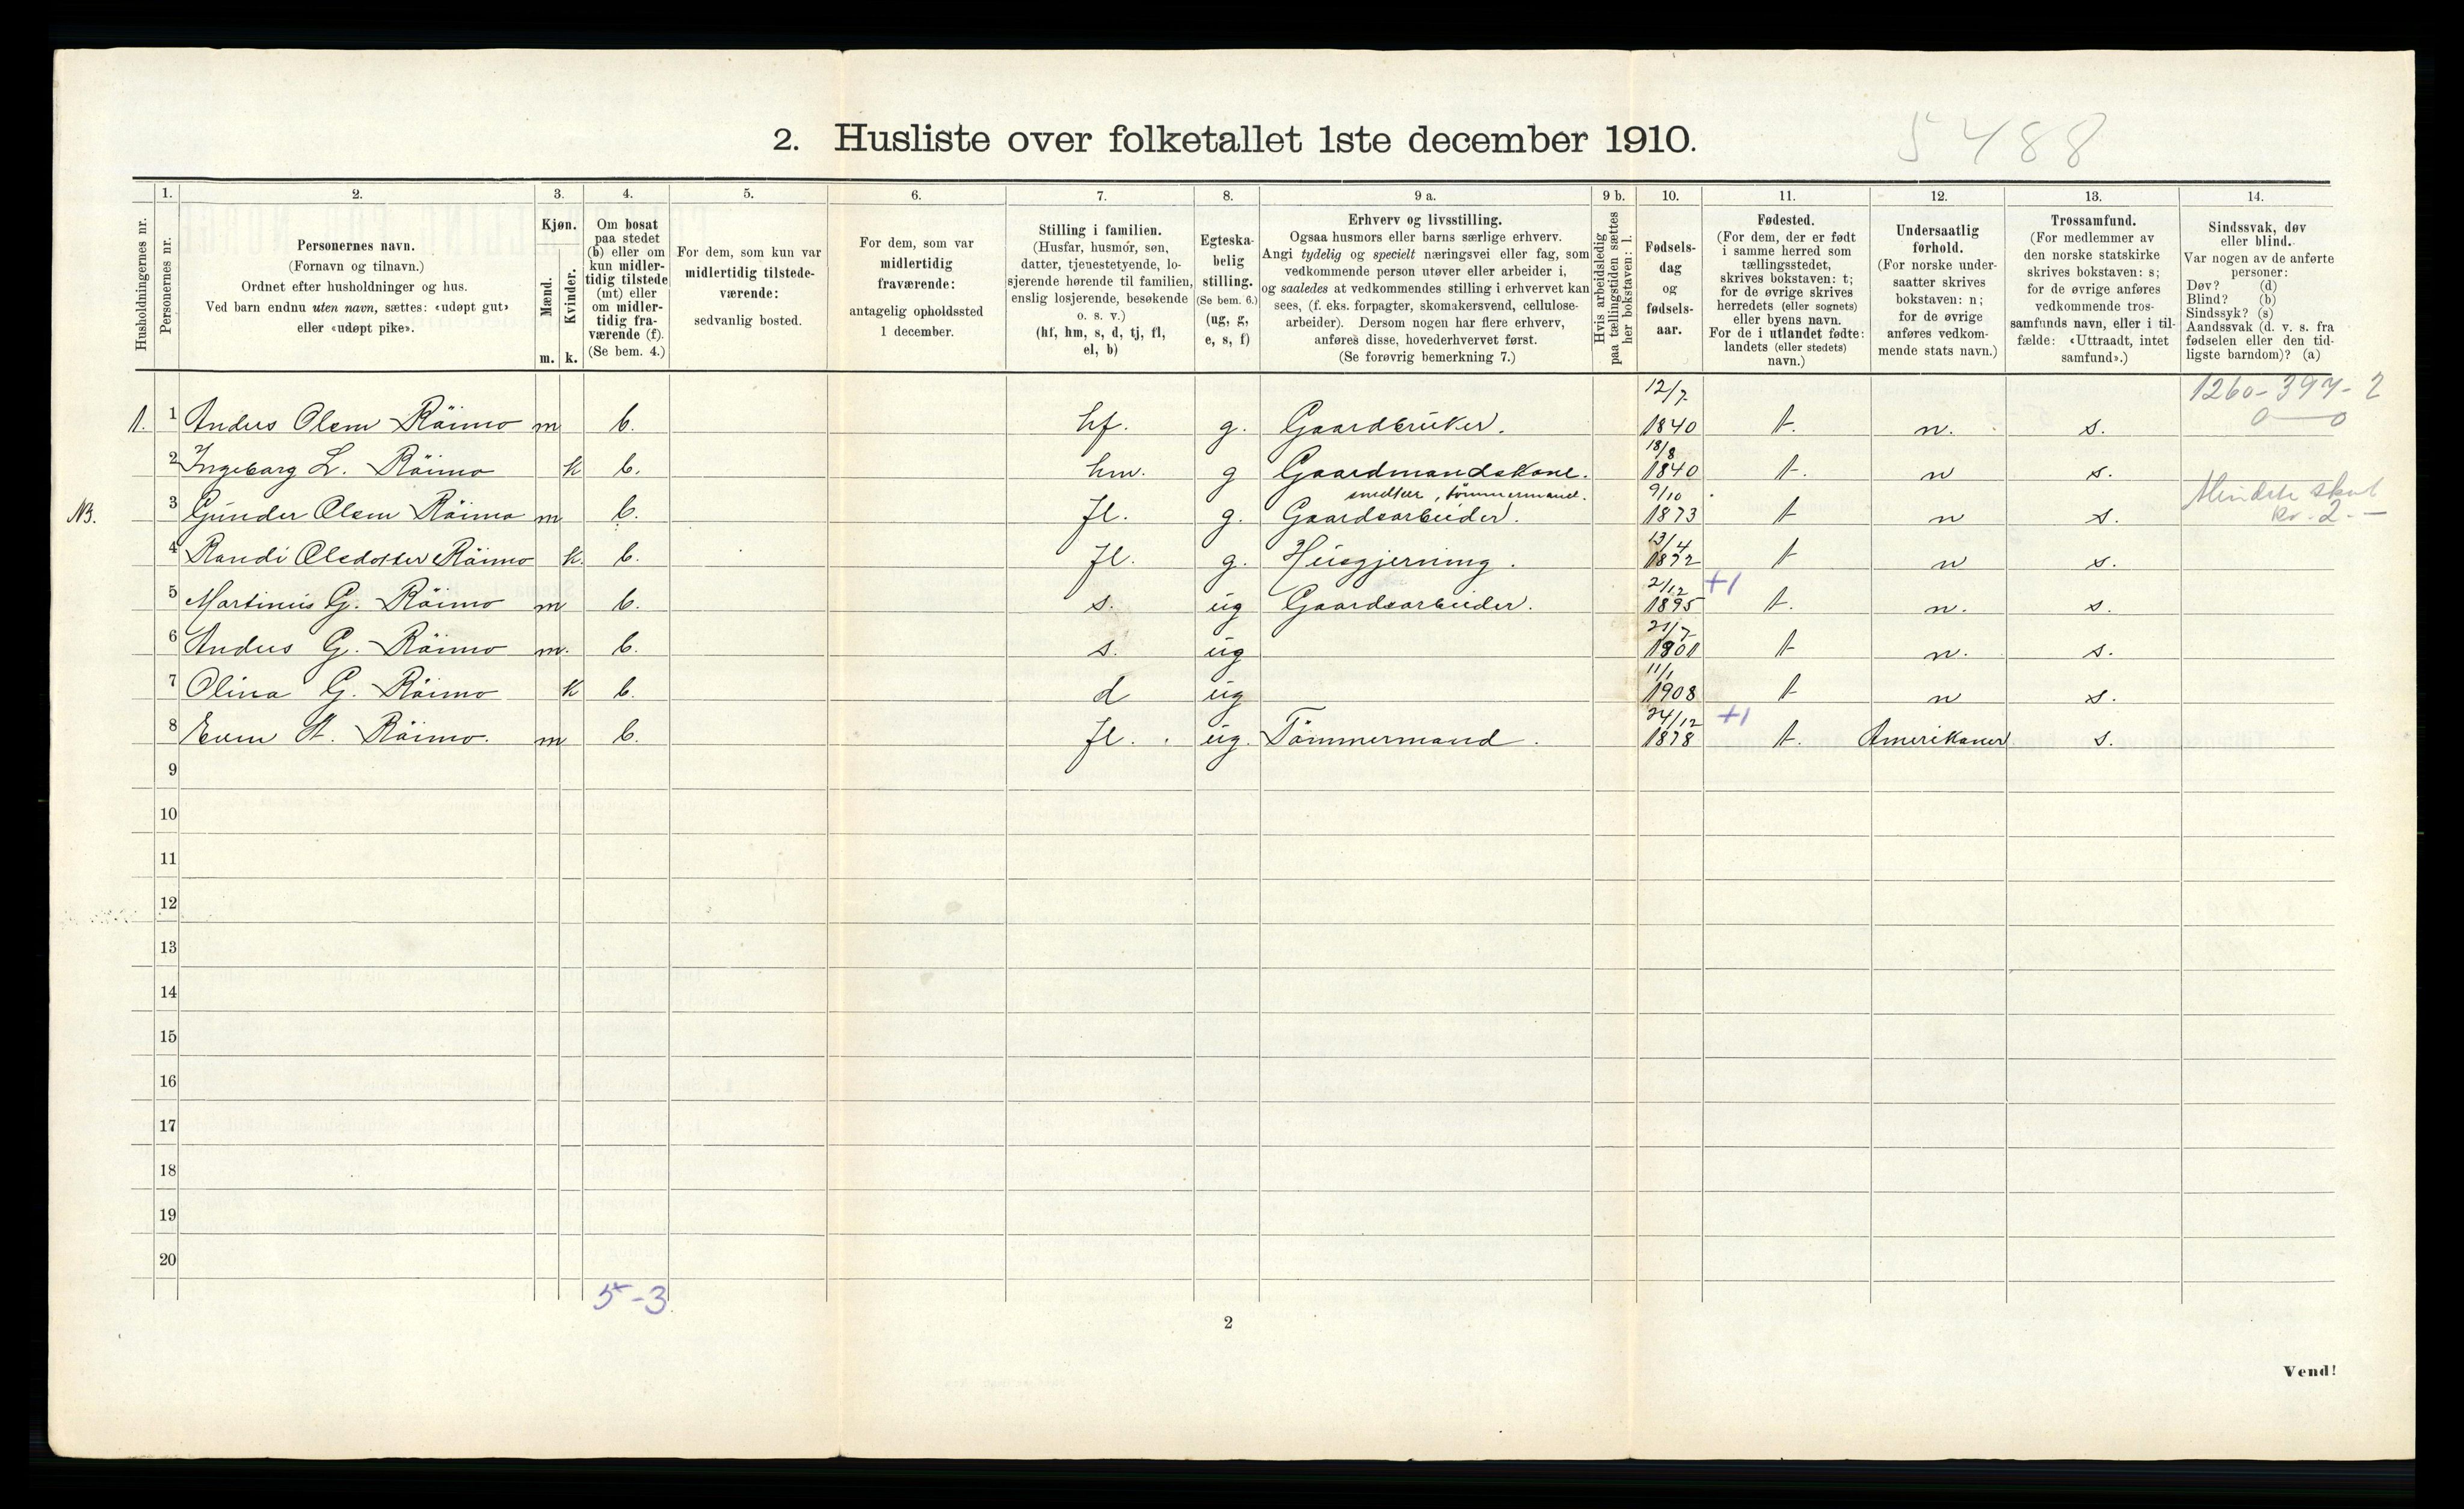 5488
2. Husliste over folketallet 1ste december 1910.
1. 2. 3. 4. 5. 6. 7. 8. 9 a. 9 b. 10. 11. 12. 13. 14.
Husholdningernes nr.
Personernes nr.
Personernes navn.
(Fornavn og tilnavn.)
Ordnet efter husholdninger og hus.
Ved barn endnu uten navn, sættes: «udøpt gut»
eller «udøpt pike».
Kjøn.
Mænd.
Kvinder.
m. k.
Om bosat
paa stedet
(b) eller om
kun midler-
tidig tilstede
(mt) eller
om midler-
tidig fra-
værende (f).
(Se bem. 4.)
For dem, som kun var
midlertidig tilstede-
værende:
sedvanlig bosted.
For dem, som var
midlertidig
fraværende:
antagelig opholdssted
1 december.
Stilling i familien.
(Husfar, husmor, søn,
datter, tjenestetyende, lo-
sjerende hørende til familien,
enslig losjerende, besøkende
o. s. v.)
(hf, hm, s, d, tj, fl,
el, b)
Egteska-
belig
stilling.
(Se bem. 6.)
(ug, g,
e, s, f)
Erhverv og livsstilling.
Ogsaa husmors eller barns særlige erhverv.
Angi tydelig og specielt næringsvei eller fag, som
vedkommende person utøver eller arbeider i,
og saaledes at vedkommendes stilling i erhvervet kan
sees, (f. eks. forpagter, skomakersvend, cellulose-
arbeider). Dersom nogen har flere erhverv,
anføres disse, hovederhvervet først.
(Se forøvrig bemerkning 7.)
Hvis arbeidsledig
paa tællingstiden sættes
her bokstaven: l.
Fødsels-
dag
og
fødsels-
aar.
Fødested.
(For dem, der er født
i samme herred som
tællingsstedet,
skrives bokstaven: t;
for de øvrige skrives
herredets (eller sognets)
eller byens navn.
For de i utlandet fødte:
landets (eller stedets)
navn.)
Undersaatlig
forhold.
(For norske under-
saatter skrives
bokstaven: n;
for de øvrige
anføres vedkom-
mende stats navn.)
Trossamfund.
(For medlemmer av
den norske statskirke
skrives bokstaven: s;
for de øvrige anføres
vedkommende tros-
samfunds navn, eller i til-
fælde: «Uttraadt, intet
samfund».)
Sindssvak, døv
eller blind.
Var nogen av de anførte
personer:
Døv? (d)
Blind? (b)
Sindssyk? (s)
Aandssvak (d. v. s. fra
fødselen eller den tid-
ligste barndom)? (a)
12/7 1260-397-2
1. 1 Anders Olsen Röimo m b. hf. g. Gaardbruker. 1840 t. n. s. 0—0
18/8
2 Ingeborg L. Röimo k b. hm. g Gaardmandskone. 1840 t. n s.
smelter, tömmermand. 9/10 Mindste skat
NB. 3 Gunder Olsen Röimo m b. fl. g. Gaardsarbeider. 1873 t n s. kr. 2.—
13/4
4 Randi Olsdotter Röimo k. b. fl. g. Husgjerning. 1872 t n s.
2/12 +1
5 Martinius G. Röimo m b. s. ug Gaardsarbeider. 1895 t. n. s.
21/7
6 Anders G. Röimo m. b. s. ug 1901 t n. s.
11/1
7 Olina G. Röimo k b. d ug 1908 t n s.
24/12 +1
8 Even Röimo. m b. fl. ug. Tömmermand. 1878 t. Amerikaner s.
9
10
11
12
13
14
15
16
17
18
19
20
5-3
2
Vend!